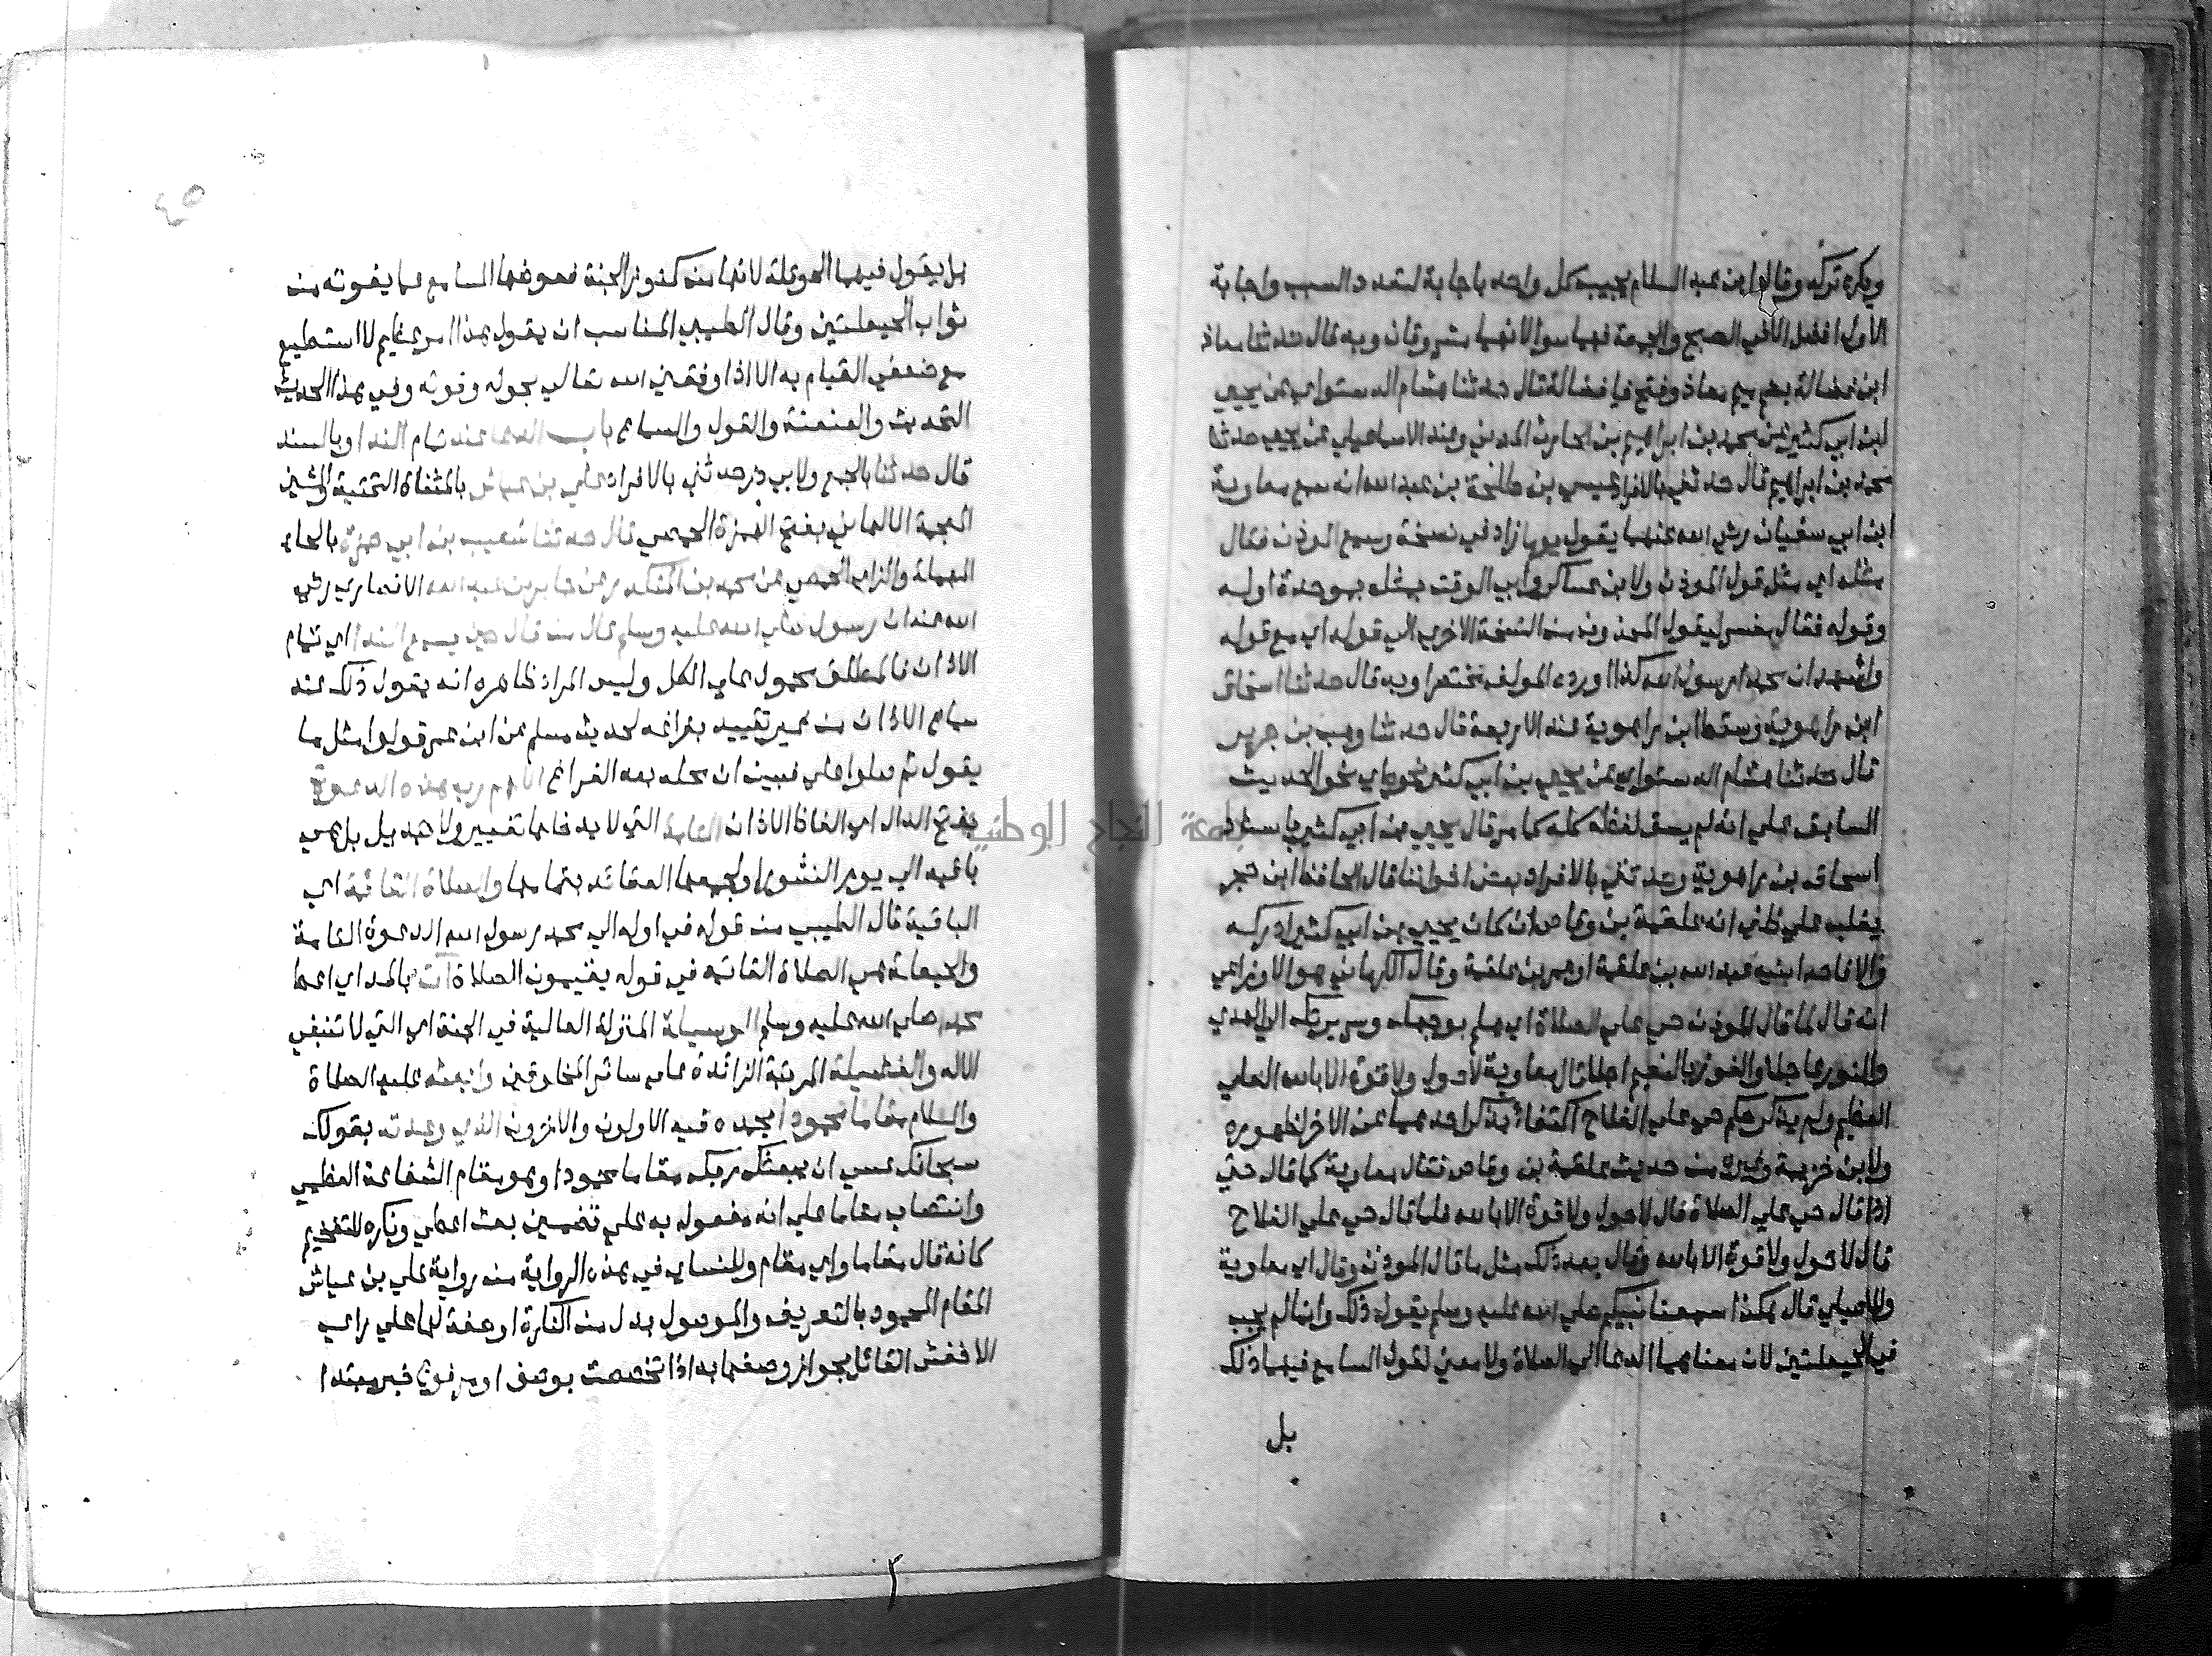 ويكره تركه وقال ابن عبد السلام يجيب كل واحد باجابة لتعدد السبب واجابة
الاول افضل الا في الصبح والجمعة فهما سوا لانهما مشروعان وبه قال حدثنا معاذ
ابن فضالة بضم ميم معاذ وفتح فا فضالة قال حدثنا هشام الدستواي عن يحيي
ابن ابي كثير عن محمد بن ابراهيم بن الحارث المدني وعند الاسماعيلي عن يحيي حدثنا
محمد بن ابراهيم قال حدثني بالافراد عيسي بن طلحة بن عبد الله انه سمع معاوية
ابن ابي سفيان رضي الله عنهما يقول يوما زاد في نسخة وسمع الموذن فقال
مثله اي مثل قول الموذن ولابن عساكر وابي الوقت بمثله بموحدة اوله
وقوله فقال مفسر ليقول المحذوف من النسخة الاخري الي قوله اي مع قوله
واشهد ان محمدا رسول الله كذا اورده المولف مختصرا وبه قال حدثنا اسحاق
ابن راهوية وسقط ابن راهوية عند الاربعة قال حدثنا وهب بن جرير
قال حدثنا هشام الدستواي عن يحيي بن ابي كثير نحوه اي نحو الحديث
السابق علي انه لم يسق لفظه كله كما مر قال يحيي بن ابي كثير باسناد
اسحاق بن راهوية وحدثني بالافراد بعض اخواننا قال الحافظ ابن حجر
يغلب علي ظني انه علقمة بن وقاص ان كان يحيي بن ابي كثير ادركه
والا فاحد ابنيه عبد الله بن علقمة او عمر بن علقمة وقال الكرماني هو الاوزاعي
انه قال لما قال الموذن حي علي الصلاة اي هلم بوجهك وسريرتك الي الهدي
والنور عاجلا والفوز بالنعيم اجلا قال معاوية لا حول ولا قوة الا بالله العلي
العظيم ولم يذكر حكم حي علي الفلاح اكتفاء بذكر احدهما عن الاخر لظهوره
ولابن خزيمة وغيره من حديث علقمة بن وقاص فقال معاوية كما قال حتي
اذا قال حي علي الصلاة قال لا حول ولا قوة الا بالله فلما قال حي علي الفلاح
قال لا حول ولا قوة الا بالله وقال بعد ذلك مثل ما قال الموذن وقال اي معاوية
وللاصيلي قال هكذا سمعنا نبيكم صلي الله عليه وسلم يقول ذلك وانما لم يجب
في الحيعلتين لان معناهما الدعا الي الصلاة ولا معني لقول السامع فيهما ذلك
بل
٤٥
بل يقول فيهما الحوقلة لانها من كنوز الجنة فعوضها السامع عما يفوته من
ثواب الحيعلتين وقال الطيبي المناسب ان يقول هذا امر عظيم لا استطيع
مع ضعفي القيام به الا اذا وفقني الله تعالي بحوله وقوته وفي هذا الحديث
التحديث والعنعنة والقول والسماع باب الدعا عند تمام الندا وبالسند
قال حدثنا بالجمع ولابي ذر حدثني بالافراد علي بن عياش بالمثناة التحتية والشين
المعجمة الالهاني بفتح الهمزة الحمصي قال حدثنا شعيب بن ابي حمزة بالحاء
المهملة والزاي الحمصي عن محمد بن المنكدر عن جابر بن عبد الله الانصاري رضي
الله عنه ان رسول صلي الله عليه وسلم قال من قال حين يسمع الندا اي تمام
الاذان فالمطلق محمول علي الكل وليس المراد ظاهره انه يقول ذلك عند
سماع الاذان من غير تقييد بفراغه لحديث مسلم عن ابن عمر قولوا مثل ما
يقول ثم صلوا علي فبين ان محله بعد الفراغ اللهم رب هذه الدعوة
بفتح الدال اي الفاظ الاذان التامة التي لا يدخلها تغيير ولا تبديل بل هي
باقية الي يوم النشور او لجمعها العقائد بتمامها والصلاة القائمة اي
الباقية قال الطيبي من قوله في اوله الي محمد رسول الله الدعوة التامة
والحيعلة هي الصلاة القائمه في قوله يقيمون الصلاة ات بالمد اي اعط
محمدا صلي الله عليه وسلم الوسيلة المنزلة العالية في الجنة اي التي لا تنبغي
الا له والفضيلة المرتبة الزائدة علي سائر المخلوقين وابعثه عليه الصلاة
والسلام مقاما محمودا يحمده فيه الاولون والاخرون الذي وعدته بقولك
سبحانك عسي ان يبعثك ربك مقاما محمودا وهو مقام الشفاعة العظمي
وانتصاب مقاما علي انه مفعول به علي تضمين بعث اعطي ونكره للتفخيم
كانه قال مقاما واي مقام وللنساي في هذه الرواية من رواية علي بن عياش
المقام المحمود بالتعريف والموصول بدل من النكرة او صفة لها علي راي
الاخفش القائل بجواز وصفها به اذا تخصصت بوصف او مرفوع خبر مبتدا
جامعة النجاح الوطنية